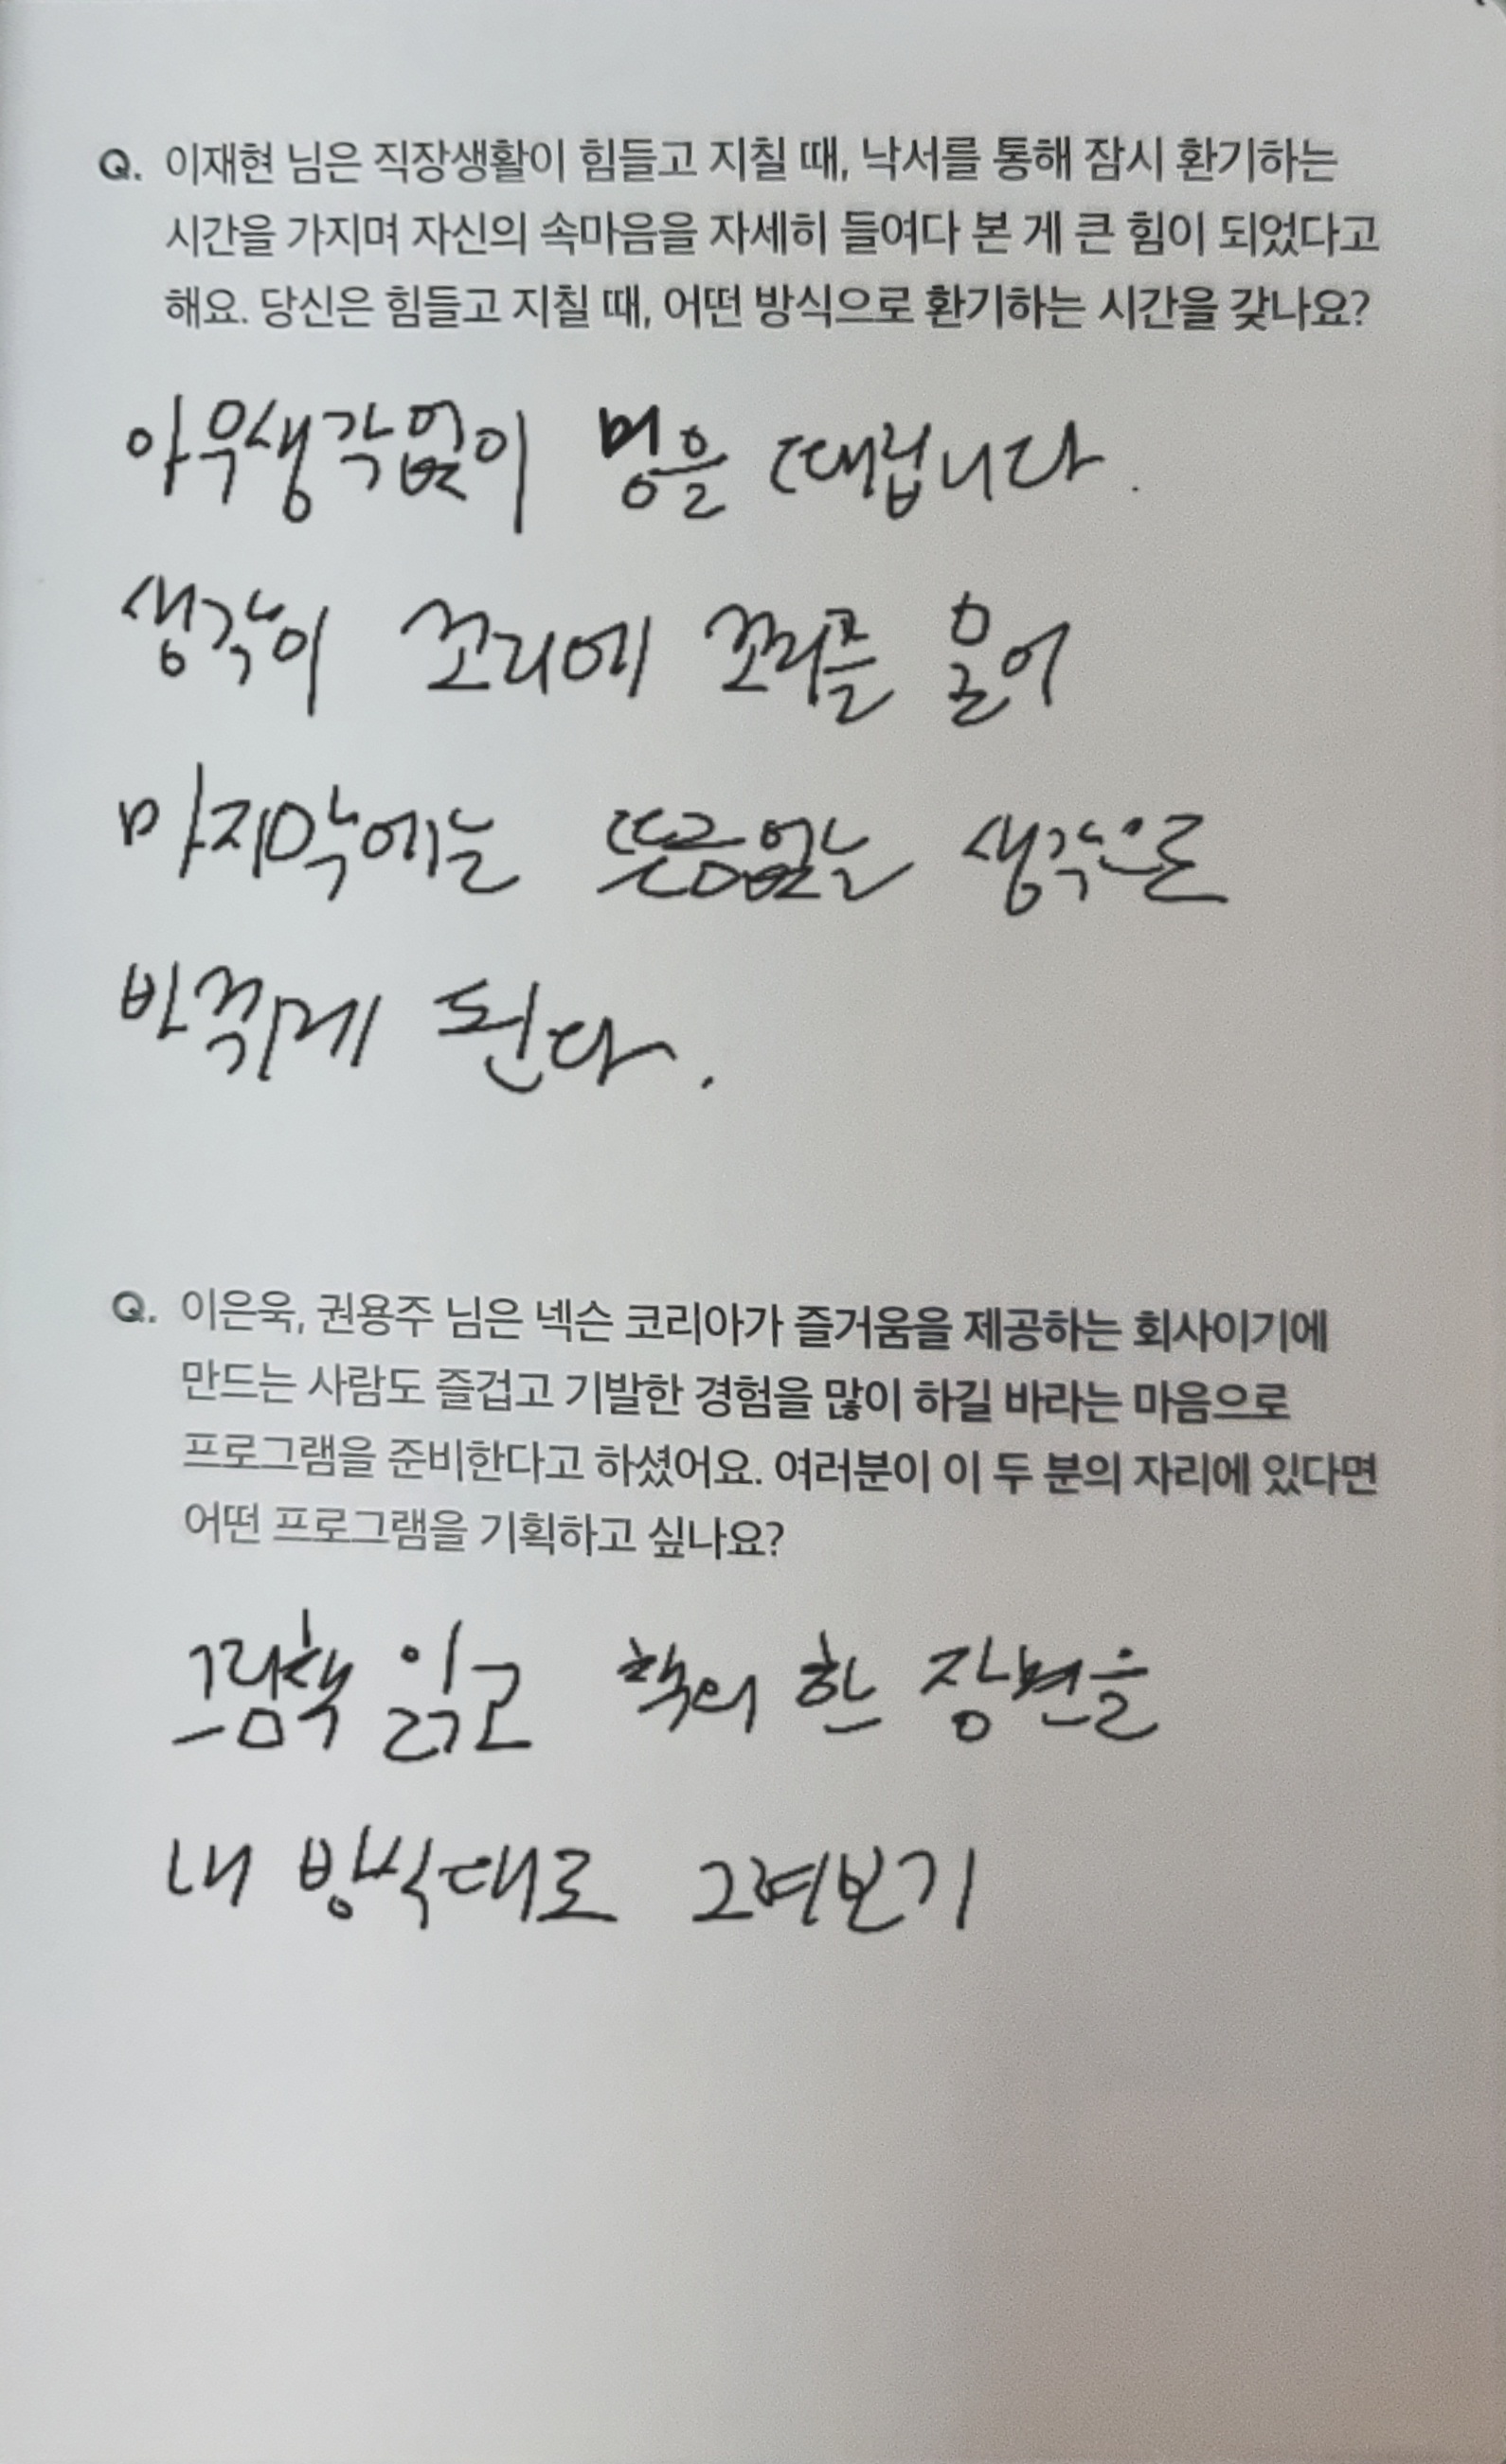 Q. 이재현 님은 직장생활이 힘들고 지칠 때, 낙서를 통해 잠시 환기하는
시간을 가지며 자신의 속마음을 자세히 들여다 본 게 큰 힘이 되었다고
해요. 당신은 힘들고 지칠 때, 어떤 방식으로 환기하는 시간을 갖나요?
아무생각없이 멍을 때립니다.
생각이 꼬리에 꼬리를 물어
마지막에는 뜬금없는 생각으로
바뀌게 된다.
Q. 이은욱, 권용주 님은 넥슨 코리아가 즐거움을 제공하는 회사이기에
만드는 사람도 즐겁고 기발한 경험을 많이 하길 바라는 마음으로
프로그램을 준비한다고 하셨어요. 여러분이 이 두 분의 자리에 있다면
어떤 프로그램을 기획하고 싶나요?
그림책 읽고 책의 한 장면을
내 방식대로 그려보기